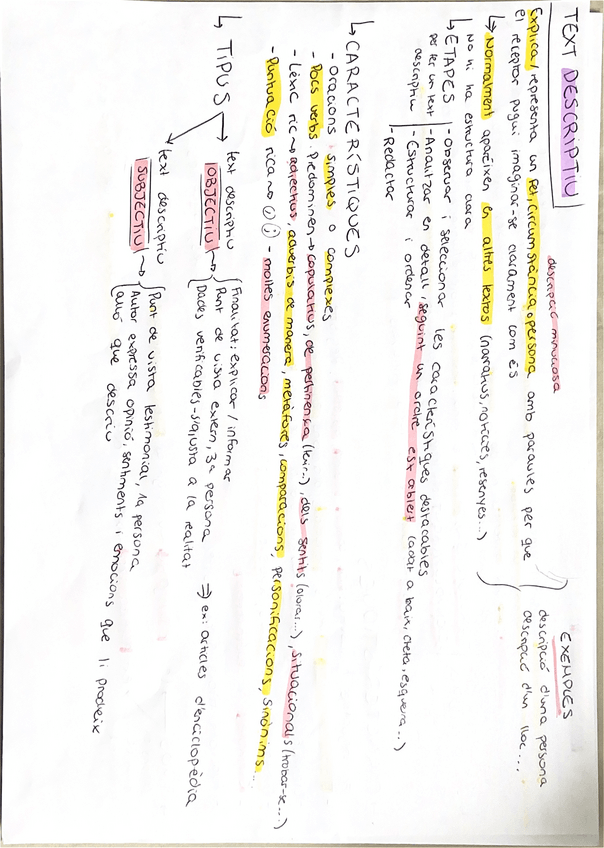 TEXT DESCRIPTIU
descripció minuciosa
Explica/representa un fet, circumstància o persona amb paraules per que
el receptor pugui imaginar-se clarament com és
↳ Normalment apareixen en altres textos (narratius, notícies, resenyes...)
No hi ha estructura clara
EXEMPLES
descripció d'una persona
descripció d'un lloc...
↳ ETAPES
per fer un text
descriptiu
- Observar i seleccionar les característiques destacables
- Analitzar en detall, seguint un ordre establert (adalt a baix, dreta, esquerra...)
- Estructurar i ordenar
- Redactar
↳ CARACTERÍSTIQUES
- Oracions simples o complexes
- Pocs verbs. Predominen → copulatius, de pertinença (tenir...), dels sentits (olorar...), situacionals (trobar-se...)
- Lèxic ric → adjectius, adverbis de manera, metàfores, comparacions, personificacions, sinònims...
- Puntuació rica → , ; - moltes enumeracions
↳ TIPUS
text descriptiu
OBJECTIU →
Finalitat: explicar / informar
Punt de vista extern, 3a persona
Dades verificables - s'ajusta a la realitat
⇒ ex: articles d'enciclopèdia
text descriptiu
SUBJECTIU →
Punt de vista testimonial, 1a persona
Autor expressa opinió, sentiments i emocions que li produeix
allò que descriu